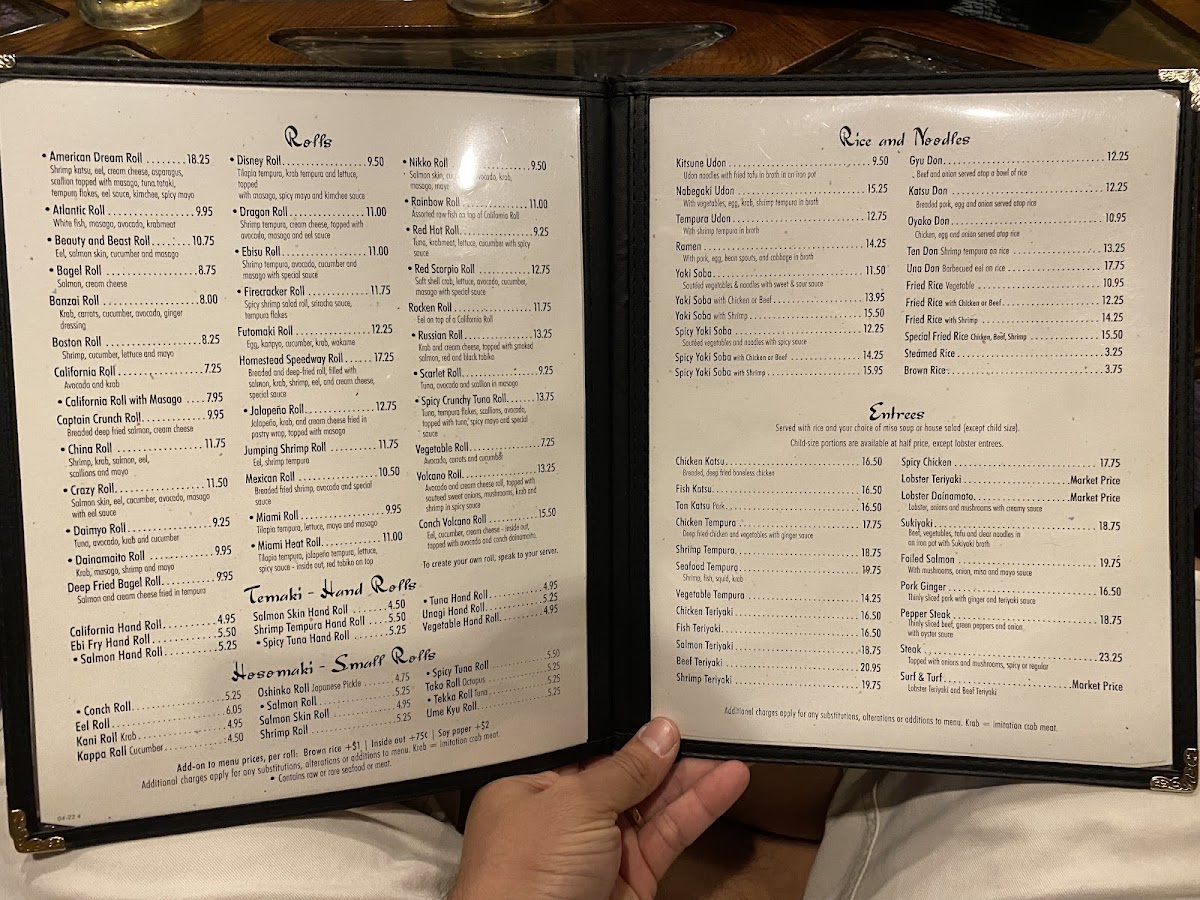 Rolls
• American Dream Roll ........18.25
Shrimp katsu, eel, cream cheese, asparagus,
scallion topped with masago, tuna tataki,
tempura flakes, eel sauce, kimchee, spicy mayo
• Atlantic Roll ........9.95
White fish, masago, avocado, krabmeat
• Beauty and Beast Roll ........10.75
Eel, salmon skin, cucumber and masago
• Bagel Roll ........8.75
Salmon, cream cheese
Banzai Roll ........8.00
Krab, carrots, cucumber, avocado, ginger
dressing
Boston Roll ........8.25
Shrimp, cucumber, lettuce and mayo
California Roll ........7.25
Avocado and krab
• California Roll with Masago ....7.95
Captain Crunch Roll........9.95
Breaded deep fried salmon, cream cheese
• China Roll ........11.75
Shrimp, krab, salmon, eel,
scallions and mayo
• Crazy Roll........11.50
Salmon skin, eel, cucumber, avocado, masago
with eel sauce
• Daimyo Roll ........9.25
Tuna, avocado, krab and cucumber
• Dainamaito Roll ........9.95
Krab, masago, shrimp and mayo
Deep Fried Bagel Roll........9.95
Salmon and cream cheese fried in tempura
• Disney Roll........9.50
Tilapia tempura, krab tempura and lettuce,
topped
with masago, spicy mayo and kimchee sauce
• Dragon Roll ........11.00
Shrimp tempura, cream cheese, topped with
avocado, masago and eel sauce
• Ebisu Roll ........11.00
Shrimp tempura, avocado, cucumber and
masago with special sauce
• Firecracker Roll ........11.75
Spicy shrimp salad roll, sriracha sauce,
tempura flakes
Futomaki Roll ........12.25
Egg, kanpyo, cucumber, krab, wakame
Homestead Speedway Roll ....17.25
Breaded and deep-fried roll, filled with
salmon, krab, shrimp, eel, and cream cheese,
special sauce
• Jalapeño Roll........12.75
Jalapeño, krab, and cream cheese fried in
pastry wrap, topped with masago
Jumping Shrimp Roll ........11.75
Eel, shrimp tempura
Mexican Roll ........10.50
Breaded fried shrimp, avocado and special
sauce
• Miami Roll ........9.95
Tilapia tempura, lettuce, mayo and masago
• Miami Heat Roll........11.00
Tilapia tempura, jalapeño tempura, lettuce,
spicy sauce - inside out, red tobiko on top
• Nikko Roll ........9.50
Salmon skin, avocado, krab,
masago, mayo
• Rainbow Roll ........11.00
Assorted raw fish on top of California Roll
• Red Hot Roll........9.25
Tuna, krabmeat, lettuce, cucumber with spicy
sauce
• Red Scorpio Roll ........12.75
Soft shell crab, lettuce, avocado, cucumber,
masago with special sauce
Rocken Roll ........11.75
Eel on top of a California Roll
• Russian Roll ........13.25
Krab and cream cheese, topped with smoked
salmon, red and black tobiko
• Scarlet Roll........9.25
Tuna, avocado and scallion in masago
• Spicy Crunchy Tuna Roll........13.75
Tuna, tempura flakes, scallions, avocado,
topped with tuna, spicy mayo and special
sauce
Vegetable Roll ........7.25
Avocado, carrots and cucumber
Volcano Roll........13.25
Avocado and cream cheese roll, topped with
sauteed sweet onions, mushrooms, krab and
shrimp in spicy sauce
Conch Volcano Roll ........15.50
Eel, cucumber, cream cheese - inside out,
topped with avocado and conch dainamaito.
To create your own roll, speak to your server.
Temaki - Hand Rolls
California Hand Roll ........4.95
Ebi Fry Hand Roll ........5.50
• Salmon Hand Roll........5.25
Salmon Skin Hand Roll ........4.50
Shrimp Tempura Hand Roll ....5.50
• Spicy Tuna Hand Roll ........5.25
• Tuna Hand Roll........4.95
Unagi Hand Roll ........5.25
Vegetable Hand Roll........4.95
Hosomaki - Small Rolls
• Conch Roll........5.25
Eel Roll ........6.05
Kani Roll Krab ........4.95
Kappa Roll Cucumber........4.50
Oshinko Roll Japanese Pickle ....4.75
• Salmon Roll........5.25
Salmon Skin Roll ........4.95
Shrimp Roll ........5.25
• Spicy Tuna Roll ........5.50
Tako Roll Octopus ........5.25
• Tekka Roll Tuna........5.25
Ume Kyu Roll........5.25
Add-on to menu prices, per roll: Brown rice +$1 | Inside out +75¢ | Soy paper +$2
Additional charges apply for any substitutions, alterations or additions to menu. Krab = imitation crab meat.
• Contains raw or rare seafood or meat.
04-22 4
Rice and Noodles
Kitsune Udon ........9.50
Udon noodles with fried tofu in broth in an iron pot
Nabegaki Udon ........15.25
With vegetables, egg, krab, shrimp tempura in broth
Tempura Udon ........12.75
With shrimp tempura in broth
Ramen ........14.25
With pork, egg, bean sprouts, and cabbage in broth
Yaki Soba ........11.50
Sautéed vegetables & noodles with sweet & sour sauce
Yaki Soba with Chicken or Beef ........13.95
Yaki Soba with Shrimp ........15.50
Spicy Yaki Soba ........12.25
Sautéed vegetables and noodles with spicy sauce
Spicy Yaki Soba with Chicken or Beef ........14.25
Spicy Yaki Soba with Shrimp ........15.95
Gyu Don........12.25
Beef and onion served atop a bowl of rice
Katsu Don ........12.25
Breaded pork, egg and onion served atop rice
Oyako Don ........10.95
Chicken, egg and onion served atop rice
Ten Don Shrimp tempura on rice ........13.25
Una Don Barbecued eel on rice ........17.75
Fried Rice Vegetable ........10.95
Fried Rice with Chicken or Beef........12.25
Fried Rice with Shrimp ........14.25
Special Fried Rice Chicken, Beef, Shrimp ........15.50
Steamed Rice ........3.25
Brown Rice........3.75
Entrees
Served with rice and your choice of miso soup or house salad (except child size).
Child-size portions are available at half price, except lobster entrees.
Chicken Katsu........16.50
Breaded, deep fried boneless chicken
Fish Katsu........16.50
Ton Katsu Pork........16.50
Chicken Tempura ........17.75
Deep fried chicken and vegetables with ginger sauce
Shrimp Tempura........18.75
Seafood Tempura........19.75
Shrimp, fish, squid, krab
Vegetable Tempura ........14.25
Chicken Teriyaki ........16.50
Fish Teriyaki........16.50
Salmon Teriyaki ........18.75
Beef Teriyaki ........20.95
Shrimp Teriyaki ........19.75
Spicy Chicken ........17.75
Lobster Teriyaki........Market Price
Lobster Dainamato........Market Price
Lobster, onions and mushrooms with creamy sauce
Sukiyaki ........18.75
Beef, vegetables, tofu and clear noodles in
an iron pot with Sukiyaki broth
Foiled Salmon ........19.75
With mushrooms, onion, miso and mayo sauce
Pork Ginger ........16.50
Thinly sliced pork with ginger and teriyaki sauce
Pepper Steak ........18.75
Thinly sliced beef, green peppers and onion,
with oyster sauce
Steak ........23.25
Topped with onions and mushrooms, spicy or regular
Surf & Turf........Market Price
Lobster Teriyaki and Beef Teriyaki
Additional charges apply for any substitutions, alterations or additions to menu. Krab = imitation crab meat.